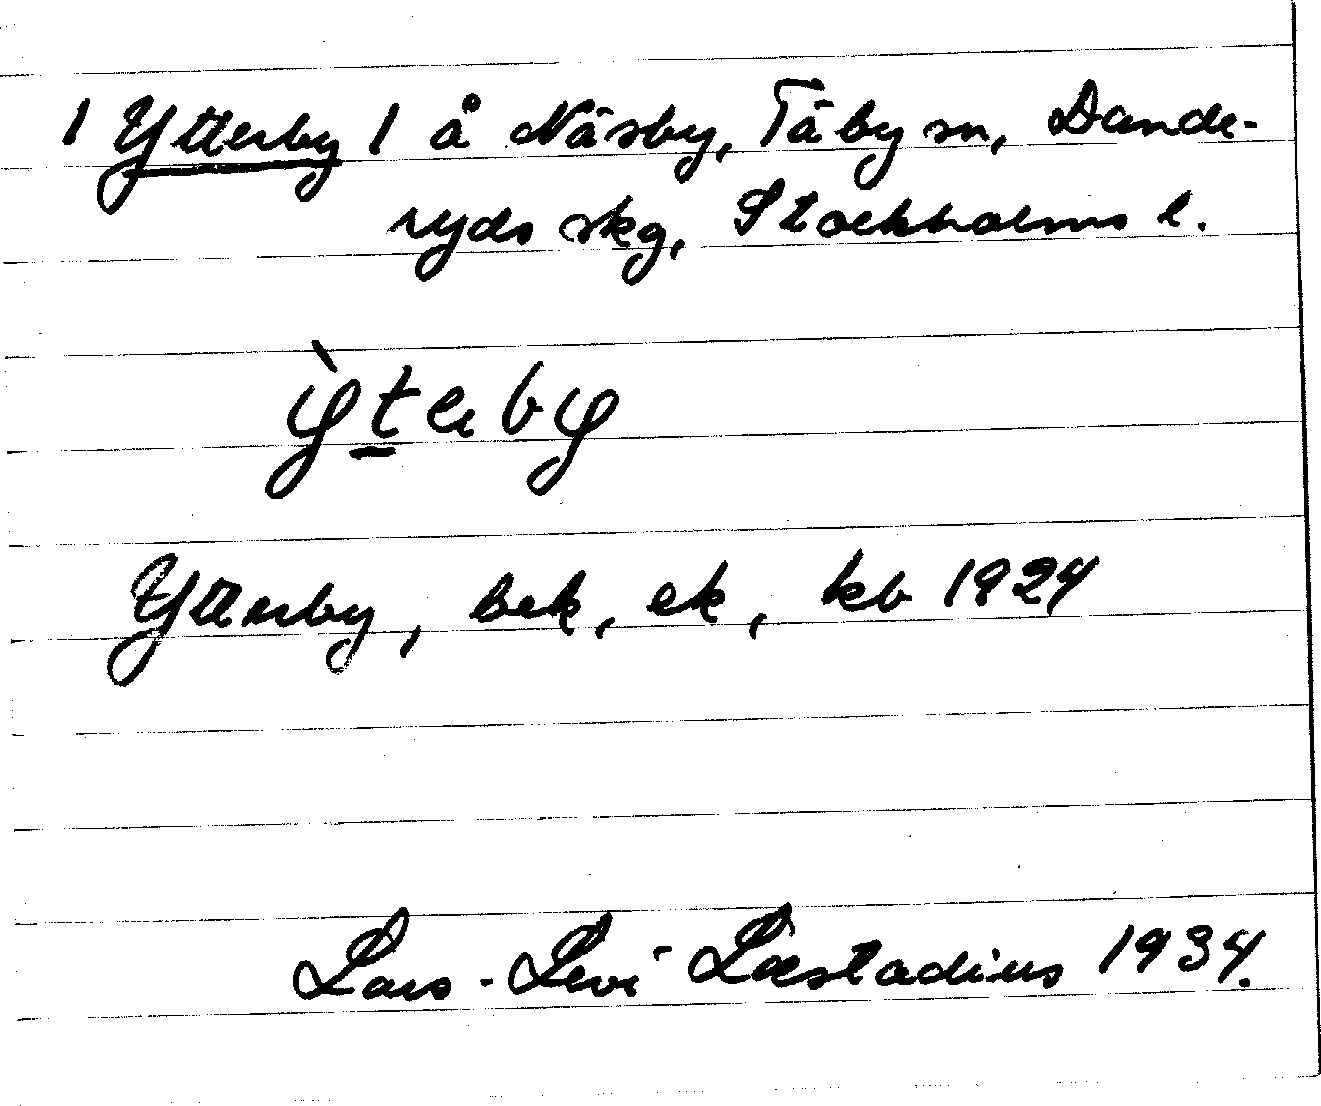 1 Ytterby 1 å Näsby, Täby sn, Dande-
ryds skg, Stockholms l.
ỳterby
Ytterby, bek, ek, kb 1924
Lars-Levi Læstadius 1934.